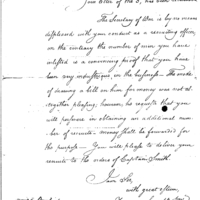 your letter of the 5,
The Secretary of War is by no means
displeased with your conduct as a recruiting officer,
on the contrary the number of men you have
enlisted is a convincing proof that you have
been very industrious in the business. The mode
of drawing a bill on him for money was not al-
together pleasing, however, he requests that you
will persevere in obtaining an additional num-
ber of recruits - money shall be forwarded for
the purpose - You will please to deliver your
recruits to the orders of Captain Smith.
I am Sir,
with great esteem,